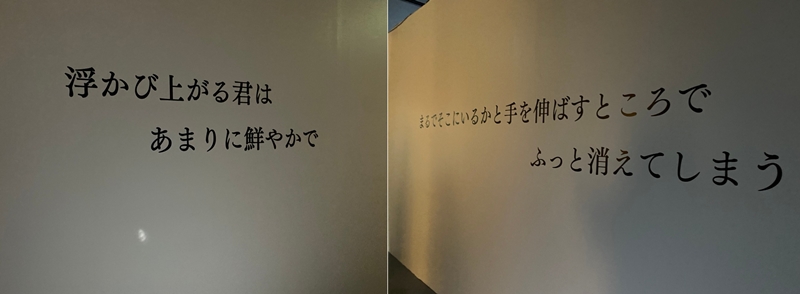 浮かび上がる君は
あまりに鮮やかで
まるでそこにいるかと手を伸ばすところで
ふっと消えてしまう